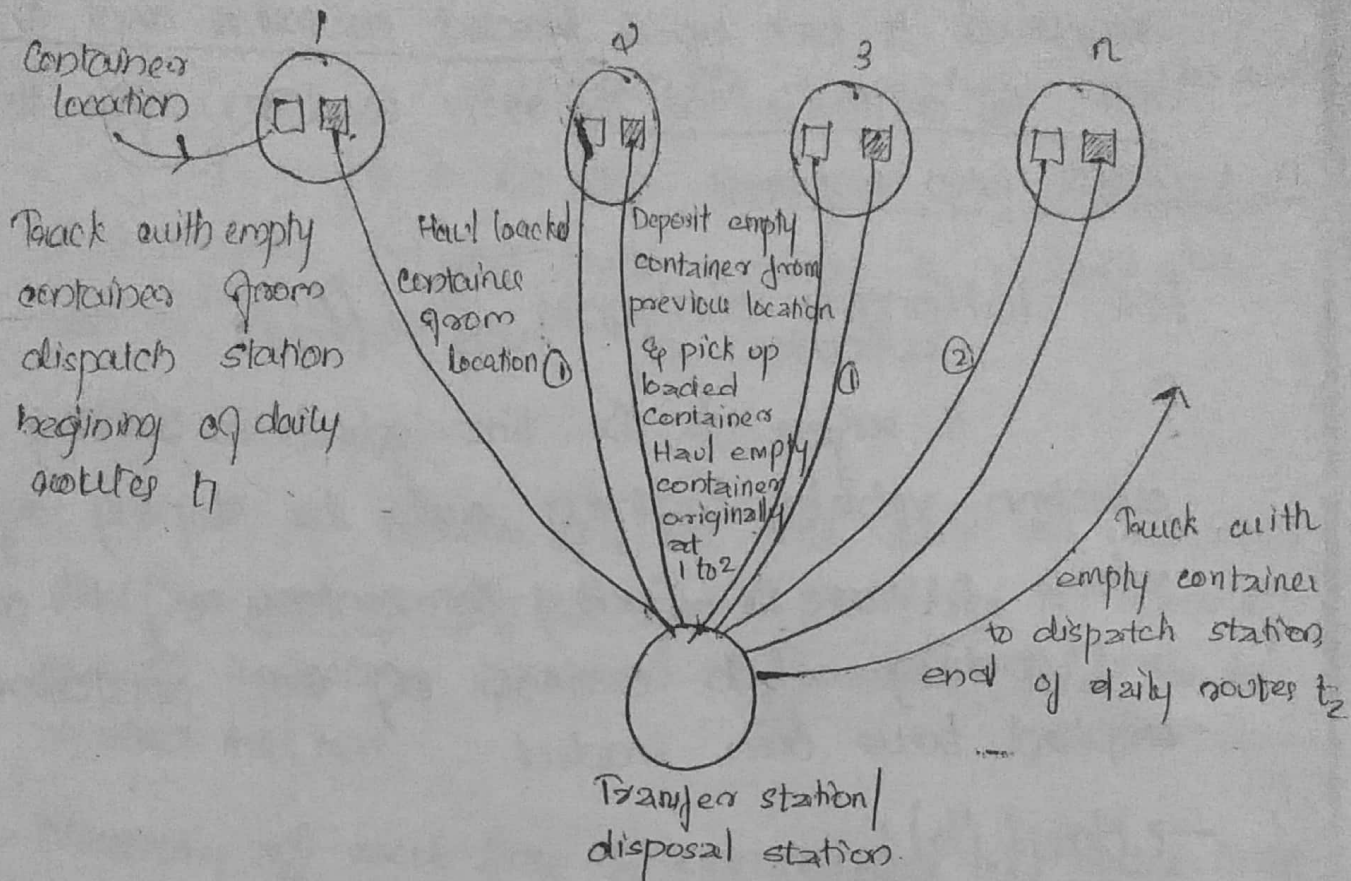 1
2
3
n
Container
location
Truck with empty
container from
dispatch station
begining of daily
routes t1
Haul loaded
container
from
location ①
Deposit empty
container from
previous location
& pick up
loaded
Container
Haul empty
container
originally
at
1 to 2
①
②
Truck with
empty container
to dispatch station,
end of daily routes t2
Transfer station/
disposal station.